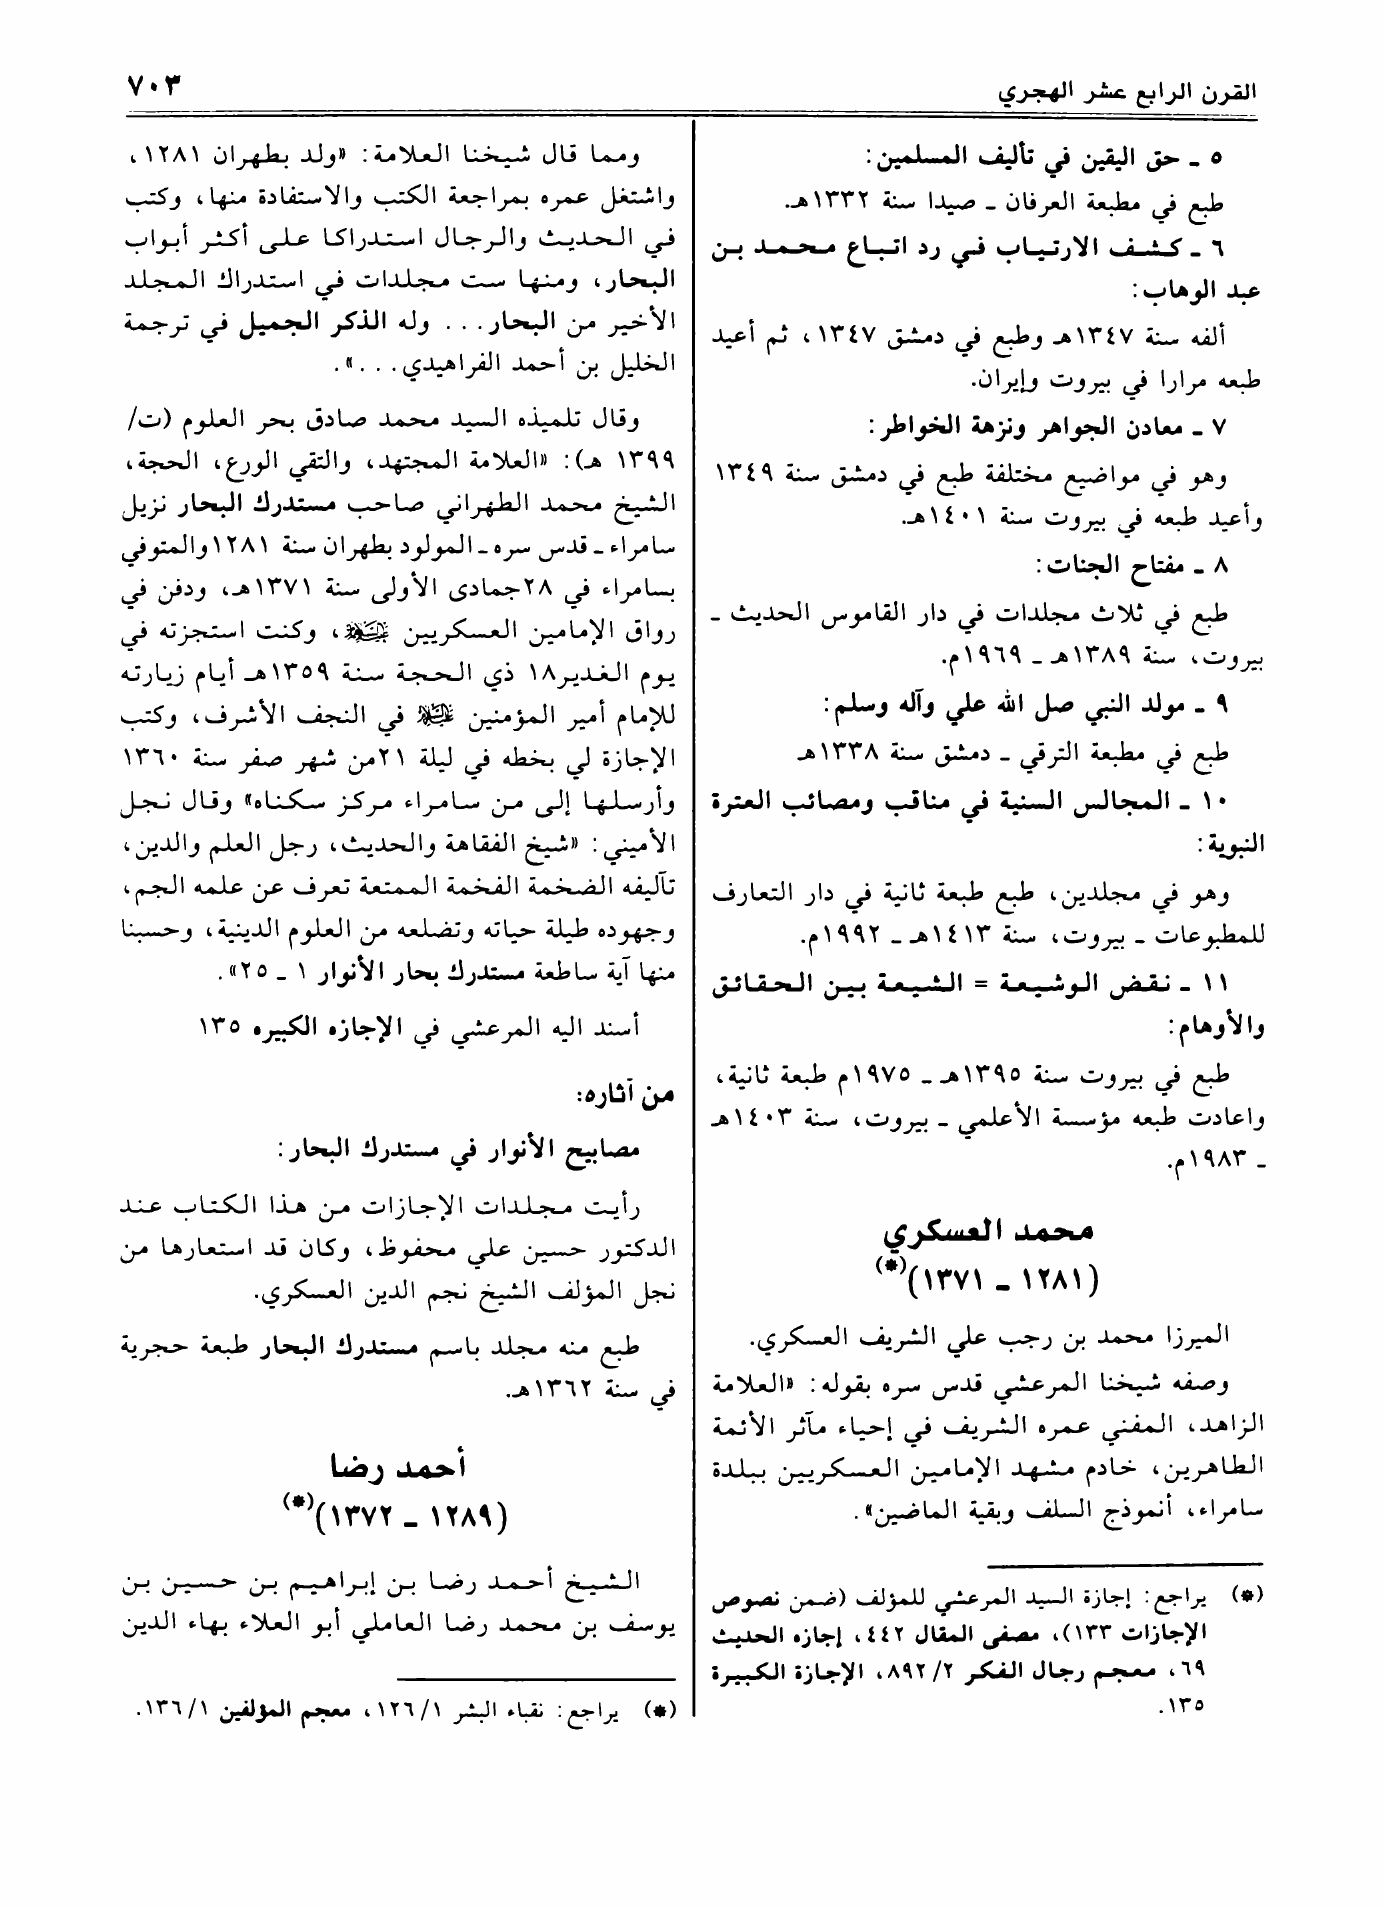 القرن الرابع عشر الهجري
٧٠٣
٥ ـ حق اليقين في تأليف المسلمين:
طبع في مطبعة العرفان ـ صيدا سنة ١٣٣٢هـ.
٦ ـ كشف الارتياب في رد اتباع محمد بن
عبد الوهاب:
ألفه سنة ١٣٤٧هـ وطبع في دمشق ١٣٤٧، ثم أعيد
طبعه مرارا في بيروت وإيران.
٧ ـ معادن الجواهر ونزهة الخواطر:
وهو في مواضيع مختلفة طبع في دمشق سنة ١٣٤٩
وأعيد طبعه في بيروت سنة ١٤٠١هـ.
٨ ـ مفتاح الجنات:
طبع في ثلاث مجلدات في دار القاموس الحديث ـ
بيروت، سنة ١٣٨٩هـ ـ ١٩٦٩م.
٩ ـ مولد النبي صل الله علي وآله وسلم:
طبع في مطبعة الترقي ـ دمشق سنة ١٣٣٨هـ
١٠ ـ المجالس السنية في مناقب ومصائب العترة
النبوية:
وهو في مجلدين، طبع طبعة ثانية في دار التعارف
للمطبوعات ـ بيروت، سنة ١٤١٣هـ ـ ١٩٩٢م.
١١ ـ نقض الوشيعة = الشيعة بين الحقائق
والأوهام:
طبع في بيروت سنة ١٣٩٥هـ ـ ١٩٧٥م طبعة ثانية،
واعادت طبعه مؤسسة الأعلمي ـ بيروت، سنة ١٤٠٣هـ
ـ ١٩٨٣م.
محمد العسكري
(١٢٨١ ـ ١٣٧١)(*)
الميرزا محمد بن رجب علي الشريف العسكري.
وصفه شيخنا المرعشي قدس سره بقوله: «العلامة
الزاهد، المفني عمره الشريف في إحياء مآثر الأئمة
الطاهرين، خادم مشهد الإمامين العسكريين ببلدة
سامراء، أنموذج السلف وبقية الماضين».
(*) يراجع: إجازة السيد المرعشي للمؤلف (ضمن نصوص
الإجازات ١٣٣)، مصفى المقال ٤٤٢، إجازه الحديث
٦٩، معجم رجال الفكر ٨٩٢/٢، الإجازة الكبيرة
١٣٥.
ومما قال شيخنا العلامة: «ولد بطهران ١٢٨١،
واشتغل عمره بمراجعة الكتب والاستفادة منها، وكتب
في الحديث والرجال استدراكا على أكثر أبواب
البحار، ومنها ست مجلدات في استدراك المجلد
الأخير من البحار... وله الذكر الجميل في ترجمة
الخليل بن أحمد الفراهيدي...».
وقال تلميذه السيد محمد صادق بحر العلوم (ت/
١٣٩٩ هـ): «العلامة المجتهد، والتقي الورع، الحجة،
الشيخ محمد الطهراني صاحب مستدرك البحار نزيل
سامراء ـ قدس سره ـ المولود بطهران سنة ١٢٨١والمتوفي
بسامراء في ٢٨جمادى الأولى سنة ١٣٧١هـ، ودفن في
رواق الإمامين العسكريين ، وكنت استجزته في
يوم الغدير١٨ ذي الحجة سنة ١٣٥٩هـ أيام زيارته
للإمام أمير المؤمنين في النجف الأشرف، وكتب
الإجازة لي بخطه في ليلة ٢١من شهر صفر سنة ١٣٦٠
وأرسلها إلى من سامراء مركز سكناه» وقال نجل
الأميني: «شيخ الفقاهة والحديث، رجل العلم والدين،
تآليفه الضخمة الفخمة الممتعة تعرف عن علمه الجم،
وجهوده طيلة حياته وتضلعه من العلوم الدينية، وحسبنا
منها آية ساطعة مستدرك بحار الأنوار ١ ـ ٢٥».
أسند اليه المرعشي في الإجازه الكبيره ١٣٥
من آثاره:
مصابيح الأنوار في مستدرك البحار:
رأيت مجلدات الإجازات من هذا الكتاب عند
الدكتور حسين علي محفوظ، وكان قد استعارها من
نجل المؤلف الشيخ نجم الدين العسكري.
طبع منه مجلد باسم مستدرك البحار طبعة حجرية
في سنة ١٣٦٢هـ.
أحمد رضا
(١٢٨٩ ـ ١٣٧٢)(*)
الشيخ أحمد رضا بن إبراهيم بن حسين بن
يوسف بن محمد رضا العاملي أبو العلاء بهاء الدين
(*) يراجع: نقباء البشر ١٢٦/١، معجم المؤلفين ١٣٦/١.